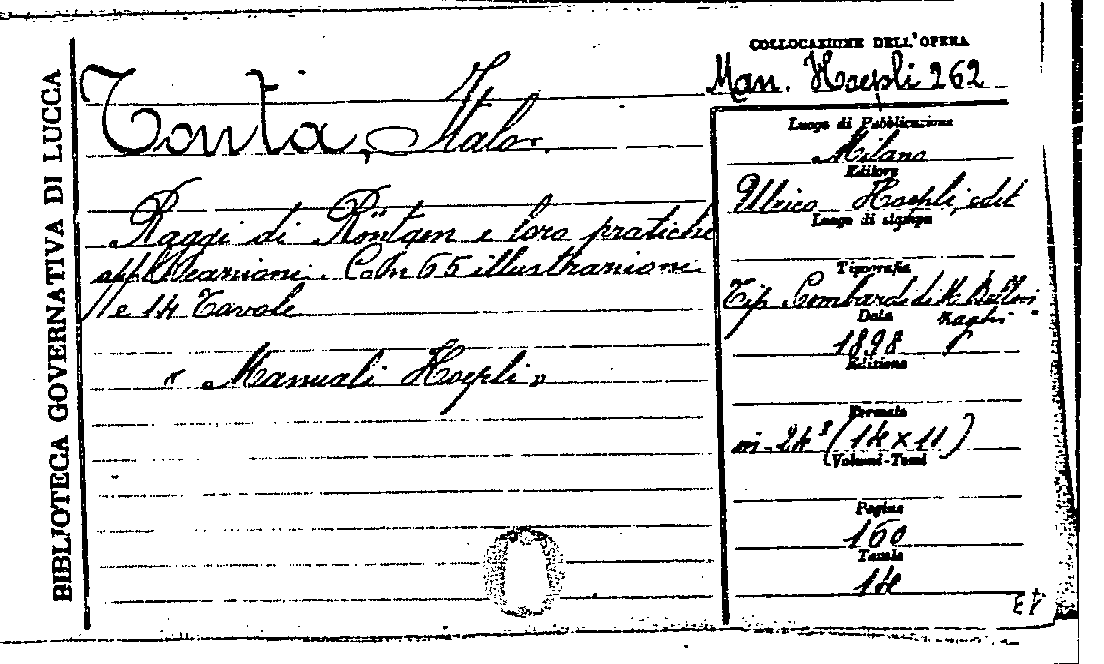 BIBLIOTECA GOVERNATIVA DI LUCCA
Tonta, Italo.
Raggi di Röntgen e loro pratiche
applicazioni. Con 65 illustrazioni
e 14 Tavole
"Manuali Hoepli"
COLLOCAZIONE DELL'OPERA
Man. Hoepli 262
Luogo di Pubblicazione
Milano
Editore
Ulrico Hoepli, edit
Luogo di stampa
Tipografia
Tip. Lombardi di M. Bellin
zaghi
Data
1898
Edizione
Formato
in-24° (14 x 11)
Volumi-Tomi
Pagine
160
Tavole
14